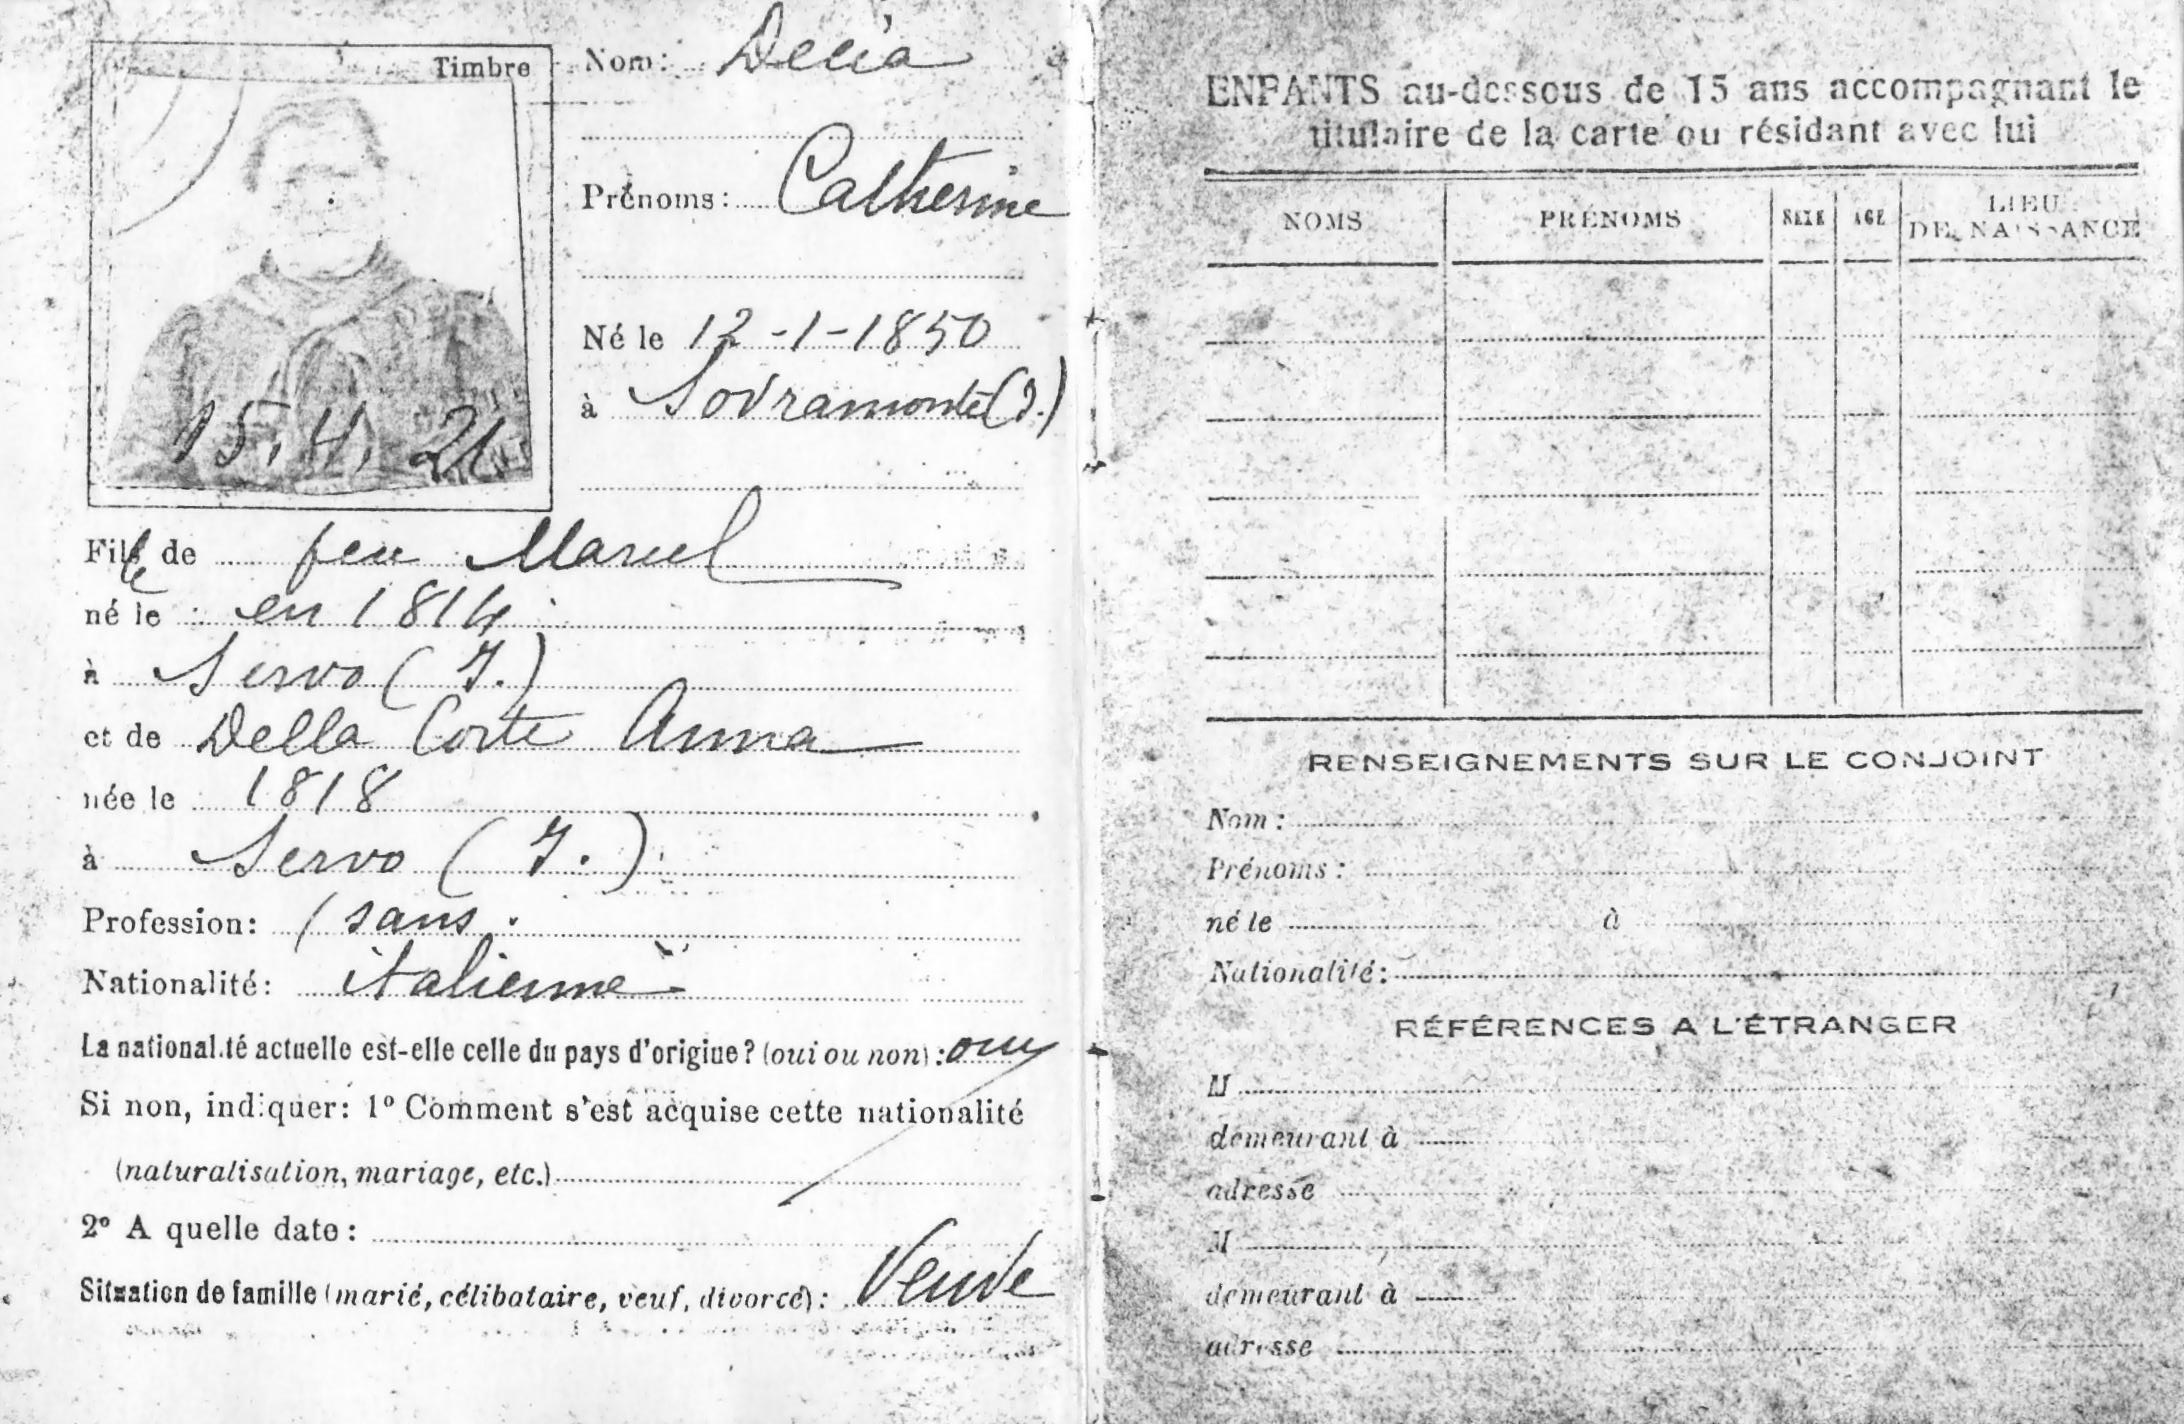 Timbre
15.4.21
Nom: Decia
Prénoms: Catherine
Né le 12-1-1850
à Sovramonte (I.)
Fille de feu Marcel
né le en 1814
à Servo (I.)
et de Della Corte Anna
née le 1818
à Servo (I.)
Profession: sans.
Nationalité: italienne
La nationalité actuelle est-elle celle du pays d'origine? (oui ou non): oui
Si non, indiquer: 1º Comment s'est acquise cette nationalité
(naturalisation, mariage, etc.)
2º A quelle date:
Situation de famille (marié, célibataire, veuf, divorcé): Veuve
ENFANTS au-dessous de 15 ans accompagnant le
titulaire de la carte ou résidant avec lui
NOMS PRÉNOMS SEXE AGE LIEU DE NAISSANCE
RENSEIGNEMENTS SUR LE CONJOINT
Nom:
Prénoms:
né le à
Nationalité:
RÉFÉRENCES A L'ÉTRANGER
M
demeurant à
adresse
M
demeurant à
adresse